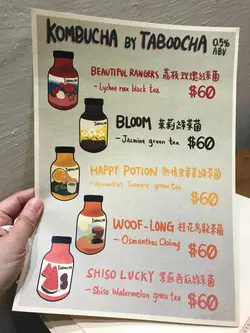 KOMBUCHA BY TABOOCHA 0.5% ABV
BEAUTIFUL RANGERS 荔枝玫瑰紅茶菌
- Lychee rose black tea
$60
BLOOM 茉莉綠茶菌
- Jasmine green tea
$60
HAPPY POTION 熱情果薑黃綠茶菌
- Passionfruit Turmeric green tea
$60
WOOF-LONG 桂花烏龍茶菌
- Osmanthus Oolong
$60
SHISO LUCKY 紫蘇西瓜綠茶菌
- Shiso Watermelon green tea
$60